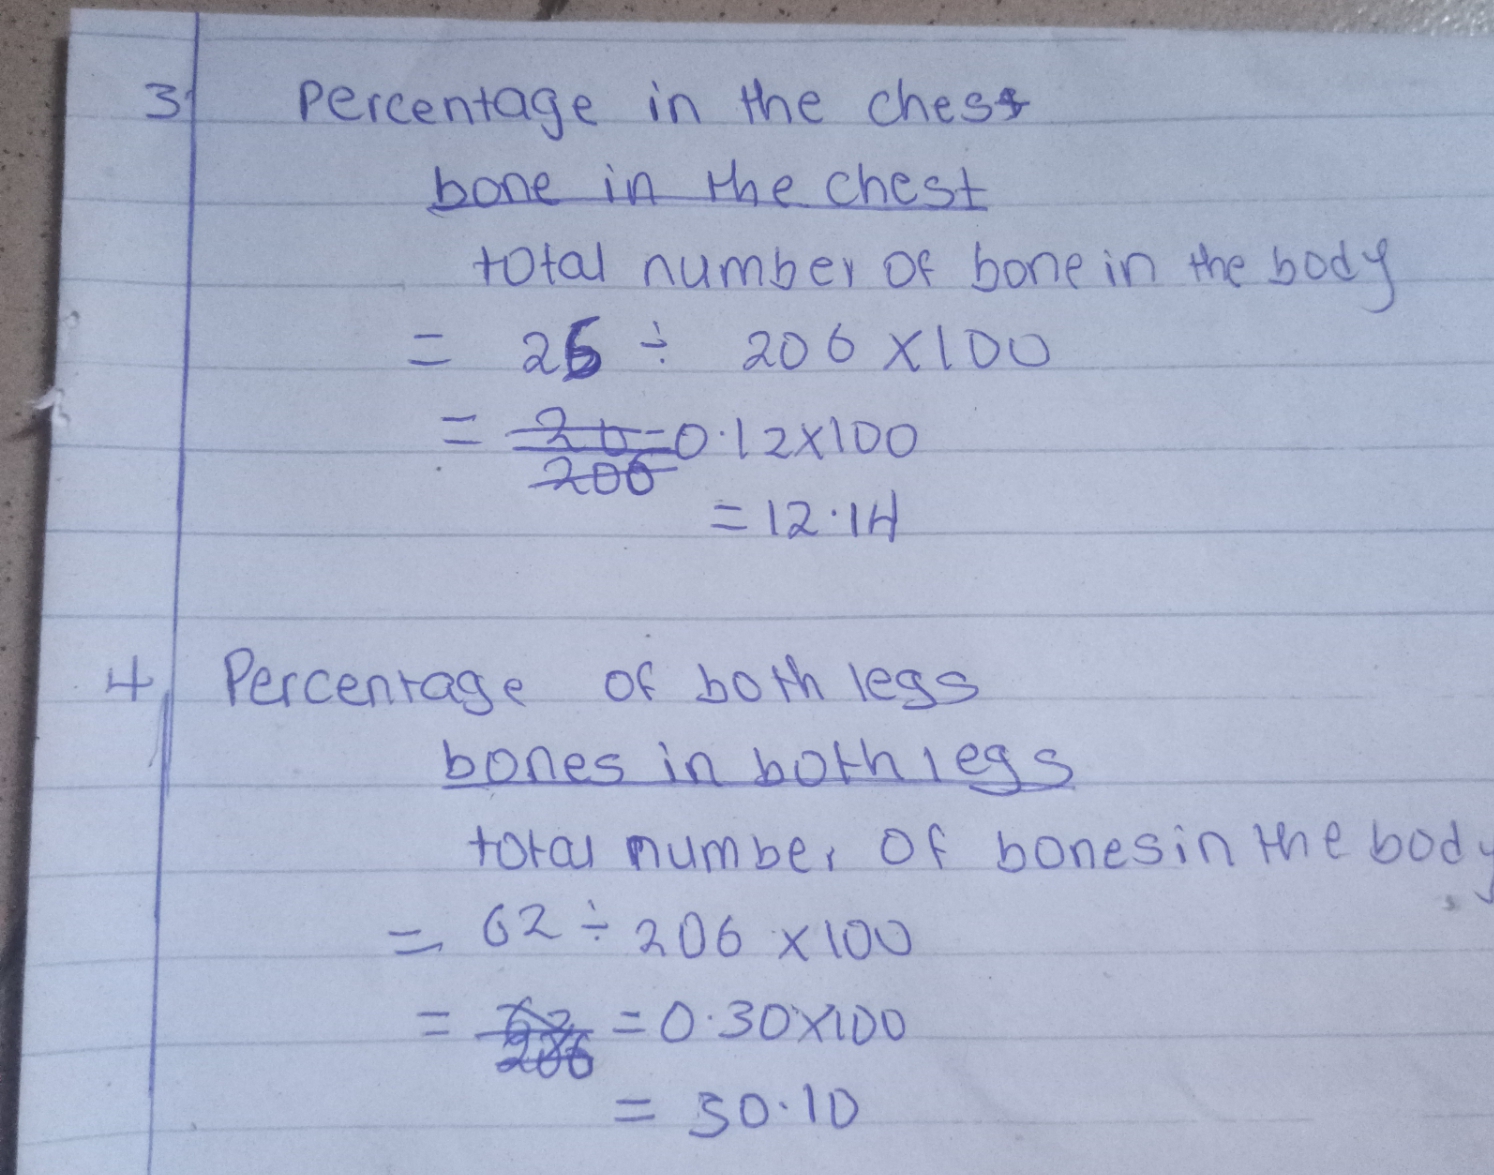 3 Percentage in the chest
bone in the chest
total number of bone in the body
= 25 ÷ 206 x100
= 0.12x100
= 12.14
4 Percentage of both legs
bones in both legs
total number of bones in the body
= 62 ÷ 206 x100
= 62 206 = 0.30x100
= 30.10